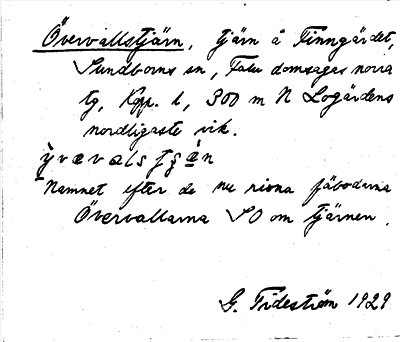 Övervallstjärn, tjärn å Finngärdet,
Sundborns sn, Falu domsagas norra
tg, Kpp. l, 300 m N Logärdens
nordligaste vik.
Namnet efter de nu rivna fäbodarna
Övervallarna SO om tjärnen.
G. Tideström 1929